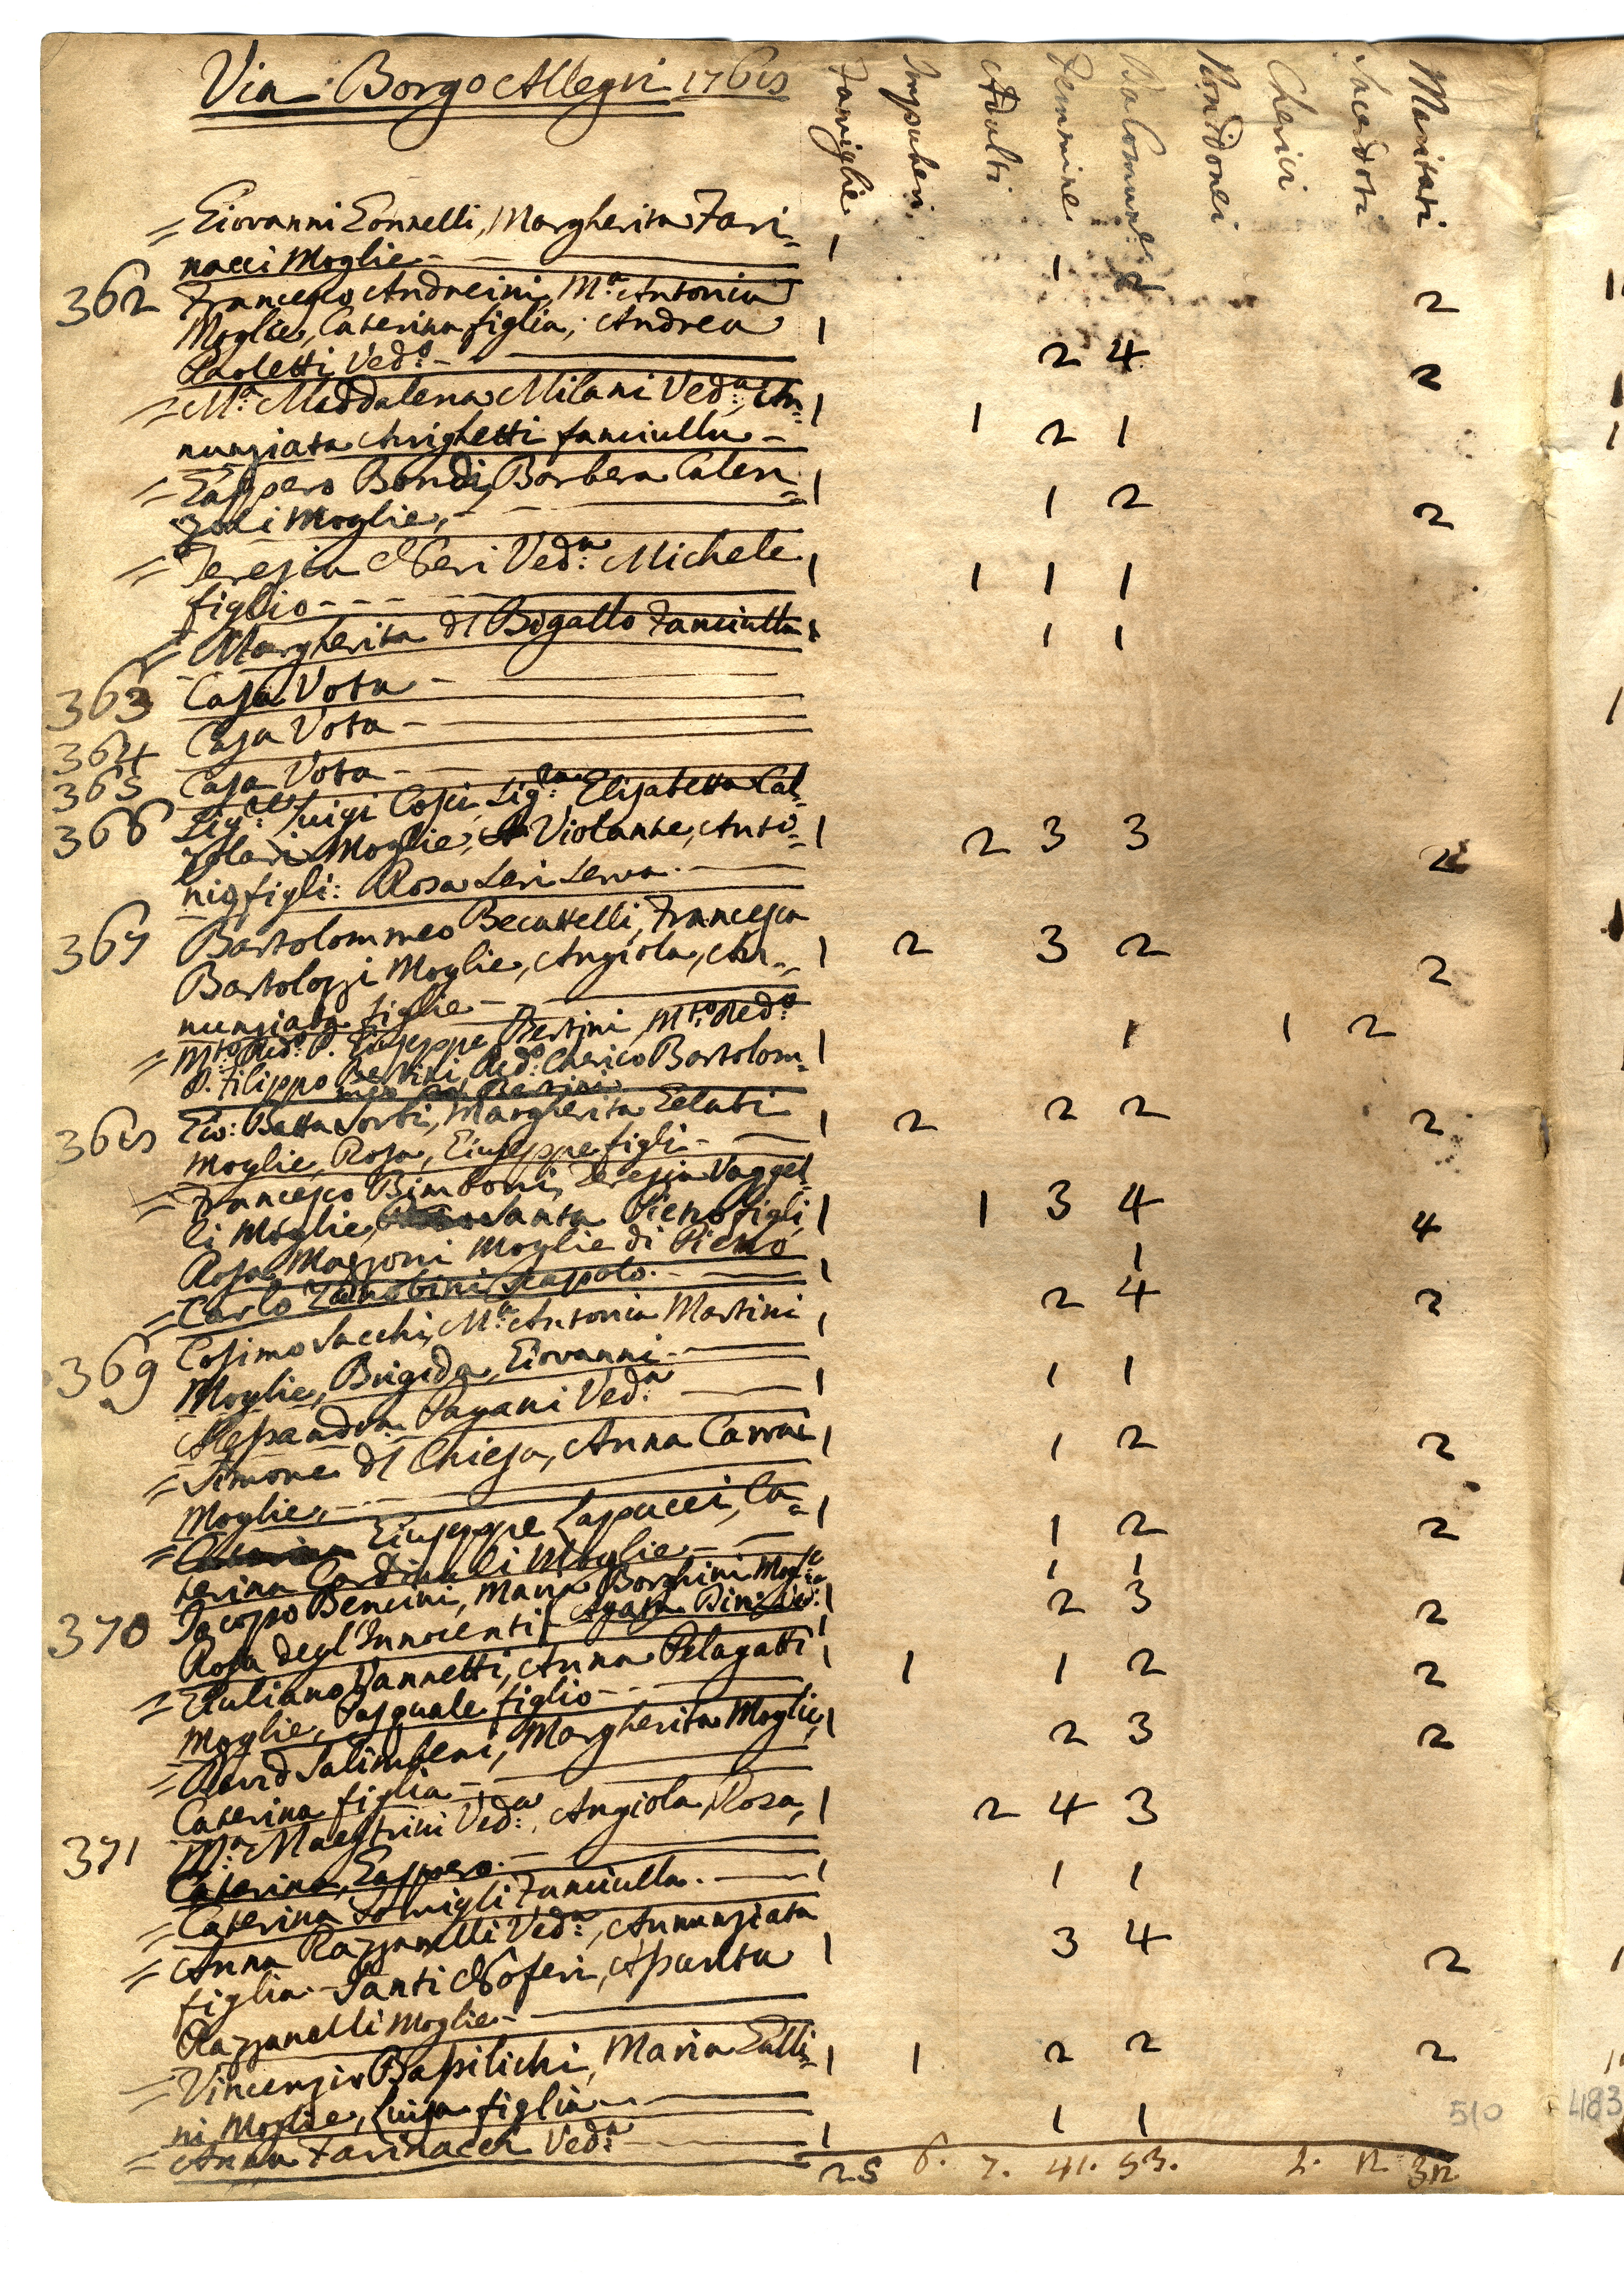 Via Borgo Allegri 1768
Famiglie Impuberi Adulti Femmine Da Comun.e Non Idonei Cherici Sacerdoti Maritati
= Giovanni Gonnelli, Margherita Fari=
nacci Moglie - 1 1 2 2
362 Francesco Andreini, M.a Antonia
Moglie, Caterina figlia, Andrea 1
Paoletti Ved.o - 2 4 2
= M.a Maddalena Milani Ved.a, An= 1 1 2 1
nunziata Arighetti fanciulla -
= Gasspero Bondi, Barbera Calen= 1 1 2 2
zoli Moglie, -
= Teresia Neri Ved.a Michele 1 1 1 1
figlio - - -
= Margherita dl Bigallo Fanciulla 1 1 1
363 Casa Vota -
364 Casa Vota -
365 Casa Vota -
366 Sig.re Luigi Cosi, Sig.ra Elisabetta Cal=
zolari Moglie, Violante, Anto= 1 2 3 3 2
nio figli: Rosa Seri Serva. -
367 Bartolommeo Becattelli, Francesca
Bartolozzi Moglie, Angiola, An= 1 2 3 2 2
nunziata figlie -
= M.to Red.o P. Giuseppe Bertini, M.to Red.o 1 1 1 2
P. Filippo Bertini, Red.o Cherico Bartolom=
meo Bertini
368 Gio: Batta Sorbi, Margherita Gelati 1 2 2 2 2
Moglie, Rosa, Giuseppe figli -
= Francesco Bimboni, Teresia Vaggel=
li Moglie, Santa Piero figli, 1 1 3 4 4
Rosa Mazzoni Moglie di Piero
= Carlo Zanobini Scapolo. - 1 1
369 Cosimo Sacchi, M.a Antonia Martini 1 2 4 2
Moglie, Brigida, Giovanni -
Alessandra Pagani Ved.a 1 1 1
= Simone dl Chiesa, Anna Carrai 1 1 2 2
Moglie, -
= Giuseppe Lapucci, Ca= 1 1 2 2
terina Cardinali Moglie - 1 1
370 Jacopo Bencini, Maria Borghini Mog.e 1 2 3 2
Rosa degl'Innocenti Agata Bini Ved: 1
= Giuliano Vannetti, Anna Pelagatti 1 1 1 2 2
Moglie, Pasquale figlio -
= David Salimbeni, Margherita Moglie, 1 2 3 2
Caterina figlia -
371 M.a Maestrini Ved.a, Angiola, Rosa, 1 2 4 3
Caterina, Gasspero. -
= Caterina Somigli Fanciulla. - 1 1 1
= Anna Razzanelli Ved.a, Annunziata 1 3 4
figlia - Santi Noferi, Assunta 2
Razzanelli Moglie -
= Vincenzio Bassilichi, Maria Galli= 1 1 2 2 2
ni Moglie, Luisa figlia -
= Anna Farinacci Ved.a 1 1 1
25 6. 7. 41. 53. 1. 2 32
510
483